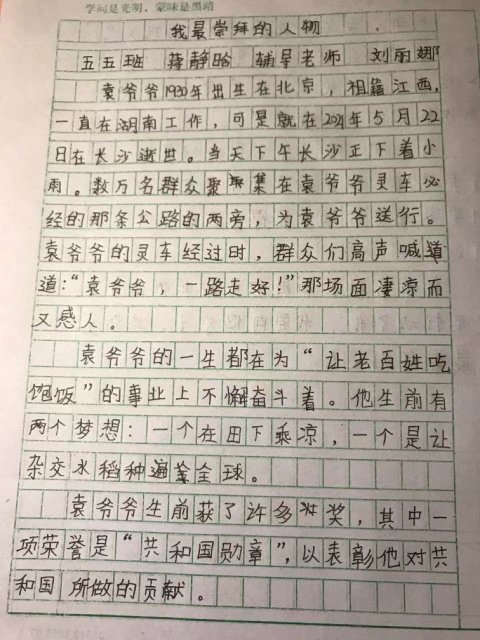 学问是光明，蒙昧是黑暗
我最崇拜的人物
五五班 蒋静晗 辅导老师 刘丽娜
袁爷爷1930年出生在北京，祖籍江西，
一直在湖南工作，可是就在2021年5月22
日在长沙逝世。当天下午长沙正下着小
雨。数万名群众聚集在袁爷爷灵车必
经的那条公路的两旁，为袁爷爷送行。
袁爷爷的灵车经过时，群众们高声喊道
道：“袁爷爷，一路走好！”那场面凄凉而
又感人。
袁爷爷的一生都在为“让老百姓吃
饱饭”的事业上不懈奋斗着。他生前有
两个梦想：一个在田下乘凉，一个是让
杂交水稻种遍全球。
袁爷爷生前获了许多奖，其中一
项荣誉是“共和国勋章”，以表彰他对共
和国所做的贡献。